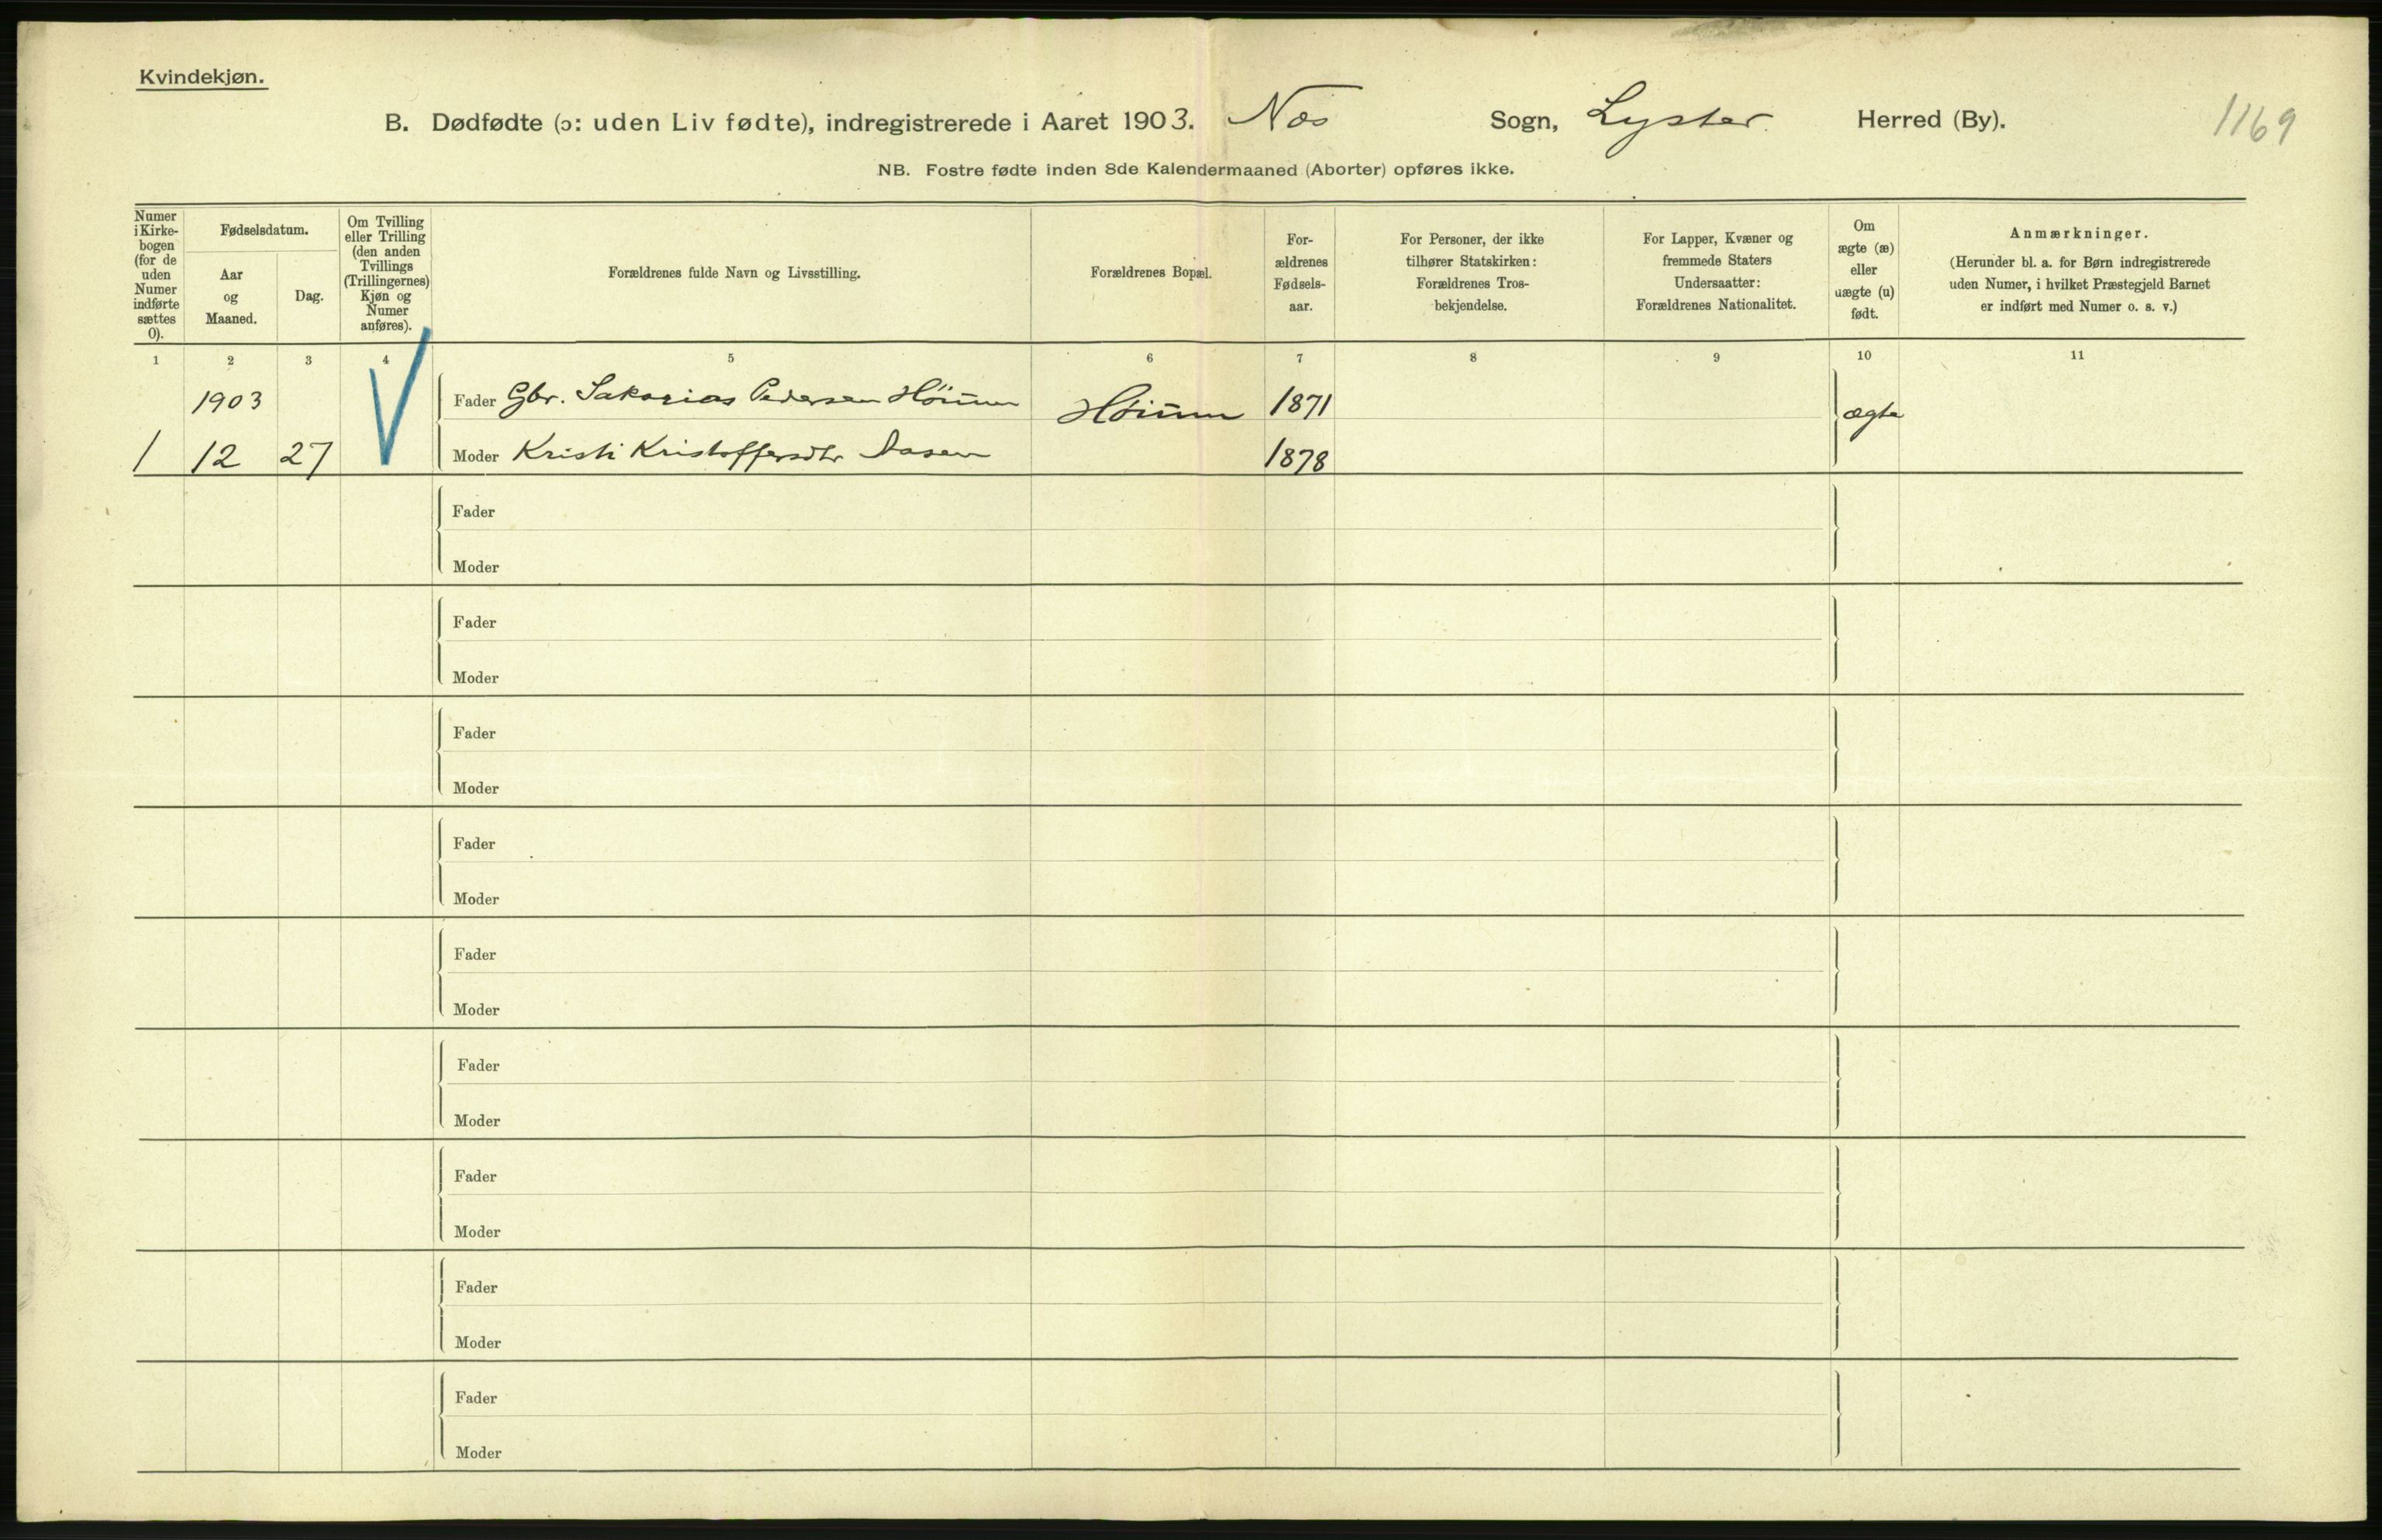 Kvindekjøn.
B. Dødfødte (ɔ: uden Liv fødte), indregistrerede i Aaret 1903. Nes Sogn, Lyster Herred (By).
1169
NB. Fostre fødte inden 8de Kalendermaaned (Aborter) opføres ikke.
Numer
i Kirke-
bogen
(for de
uden
Numer
indførte
sættes
0).
Fødselsdatum.
Aar
og
Maaned.
Dag.
Om Tvilling
eller Trilling
(den anden
Tvillings
(Trillingernes)
Kjøn og
Numer
anføres).
Forældrenes fulde Navn og Livsstilling.
Forældrenes Bopæl.
For-
ældrenes
Fødsels-
aar.
For Personer, der ikke
tilhører Statskirken:
Forældrenes Tros-
bekjendelse.
For Lapper, Kvæner og
fremmede Staters
Undersaatter:
Forældrenes Nationalitet.
Om
ægte (æ)
eller
uægte (u)
født.
Anmærkninger.
(Herunder bl. a. for Børn indregistrerede
uden Numer, i hvilket Præstegjeld Barnet
er indført med Numer o. s. v.)
1 2 3 4 5 6 7 8 9 10 11
1903 Fader Gbr. Sakarias Pedersen Høium Høium 1871 ægte
1 12 27 Moder Kristi Kristoffersdtr Aasen 1878
Fader
Moder
Fader
Moder
Fader
Moder
Fader
Moder
Fader
Moder
Fader
Moder
Fader
Moder
Fader
Moder
Fader
Moder